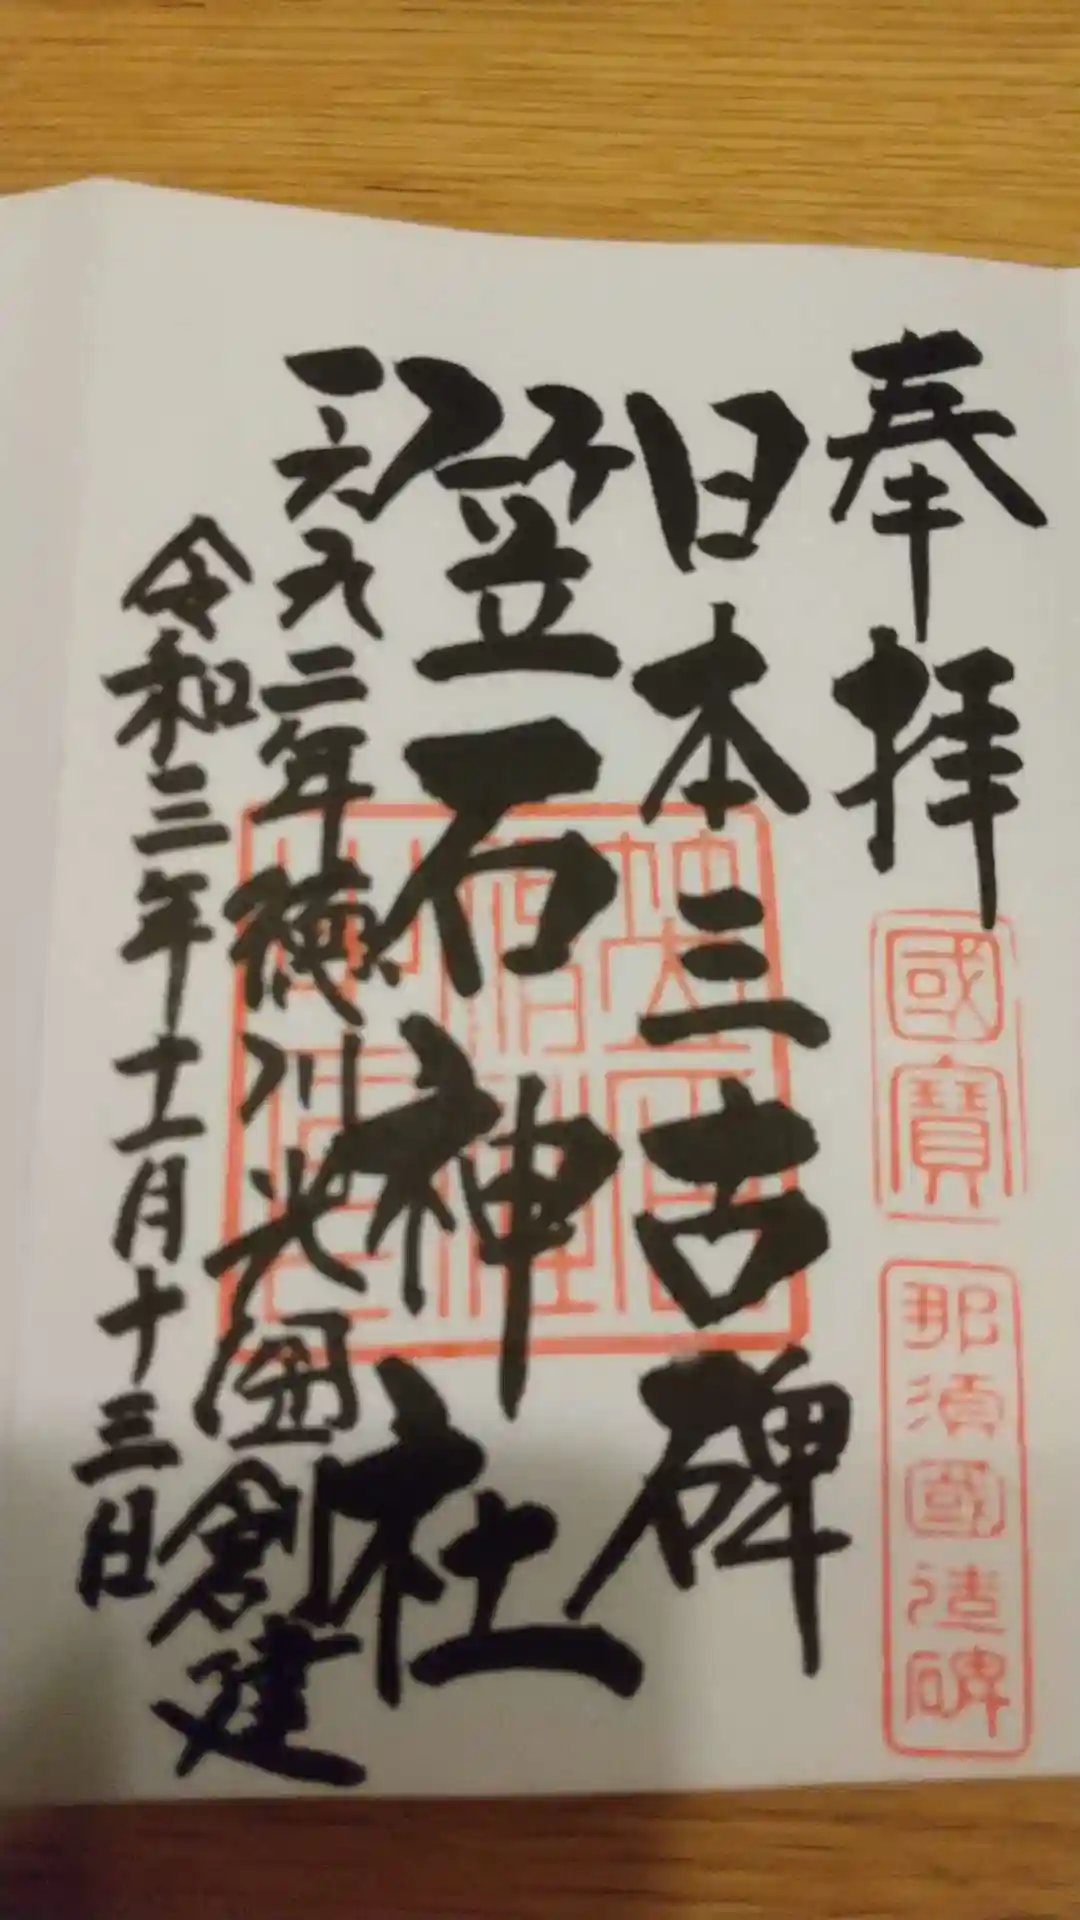 奉拝
國寶
那須國造碑
日本三古碑
笠石神社
一六九二年徳川光圀創建
令和三年十二月十三日